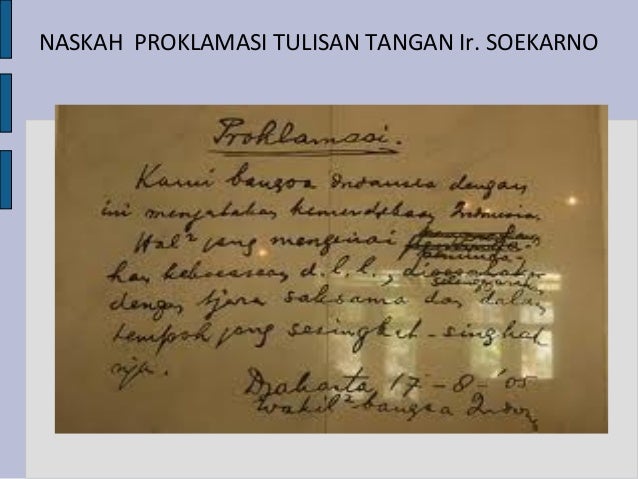 NASKAH PROKLAMASI TULISAN TANGAN Ir. SOEKARNO
Proklamasi.
Kami bangsa Indonesia dengan
ini menjatakan kemerdekaan Indonesia.
Hal² jang mengenai
peminda-
han kekoeasaan d.l.l., dioesahakan
selenggarakan
dengan tjara saksama dan dalam
tempoh jang sesingkat-singkat
nja.
Djakarta 17-8-'05
Wakil² bangsa Indon.